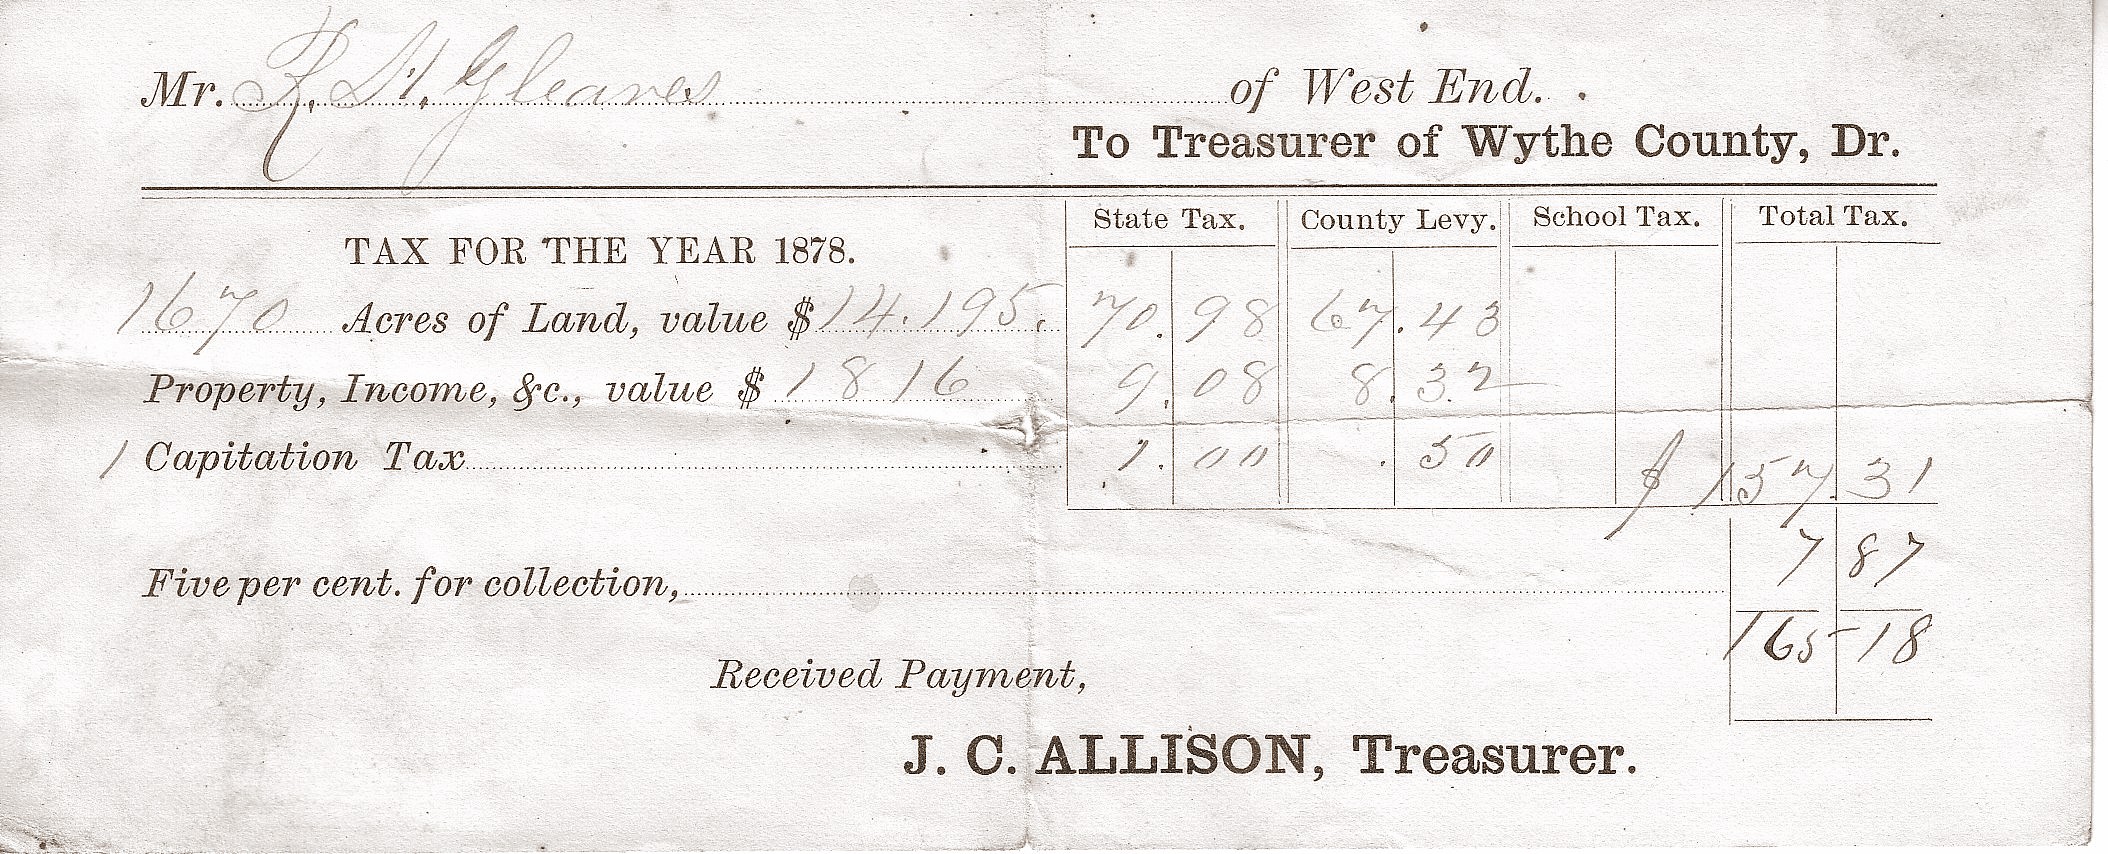 Mr. R. H. Gleaves of West End.
To Treasurer of Wythe County, Dr.
TAX FOR THE YEAR 1878. State Tax. County Levy. School Tax. Total Tax.
1670 Acres of Land, value $14.195. 70.98 67.43
Property, Income, &c., value $1816 9.08 8.32
1 Capitation Tax 1.00 .50 $157.31
Five per cent. for collection, 7 87
165 18
Received Payment,
J. C. ALLISON, Treasurer.